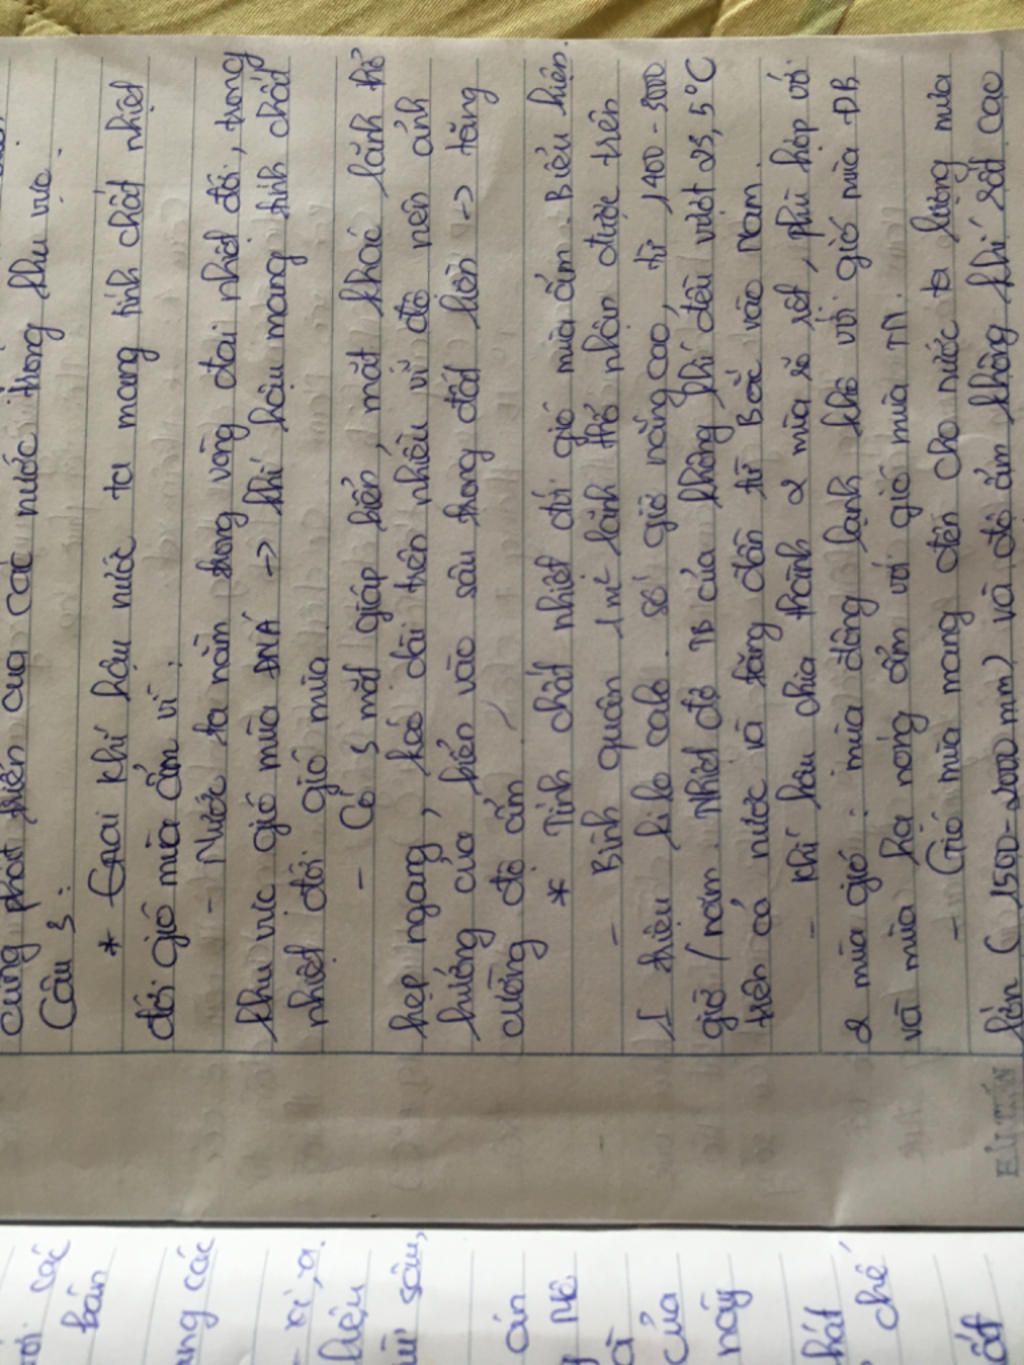 cùng phát triển của các nước trong khu vực.
Câu 3:
* Giai khí hậu nước ta mang tính chất nhiệt
đới gió mùa ẩm vì:
- Nước ta nằm trong vòng đai nhiệt đới, trong
khu vực gió mùa ĐNÁ -> khí hậu mang tính chất
nhiệt đới gió mùa
- Có 3 mặt giáp biển, mặt khác lãnh thổ
hẹp ngang, kéo dài trên nhiều vĩ độ nên ảnh
hưởng của biển vào sâu trong đất liền -> tăng
cường độ ẩm
* Tính chất nhiệt đới gió mùa ẩm. Biểu hiện.
- Bình quân 1m² lãnh thổ nhận được trên
1 triệu kilo calo. số giờ nắng cao, từ 1400 - 3000
giờ / năm. Nhiệt độ TB của không khí đều vượt 23,5°C
trên cả nước và tăng dần từ Bắc vào Nam.
- Khí hậu chia thành 2 mùa rõ rệt, phù hợp với
2 mùa gió: mùa đông lạnh khô với gió mùa ĐB
và mùa hạ nóng ẩm với gió mùa TN.
- Gió mùa mang đến cho nước ta lượng mưa
lớn (1500-2000 mm) và độ ẩm không khí rất cao
các
bán
ang các
hiệu
sâu,
án
Mê
của
này
hát
chế
ất